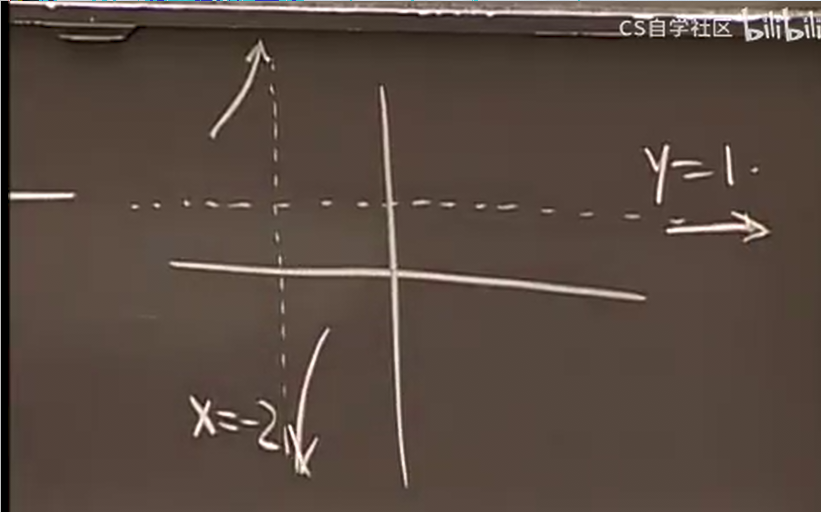 CS自学社区 bilibili
y=1.
x=-2